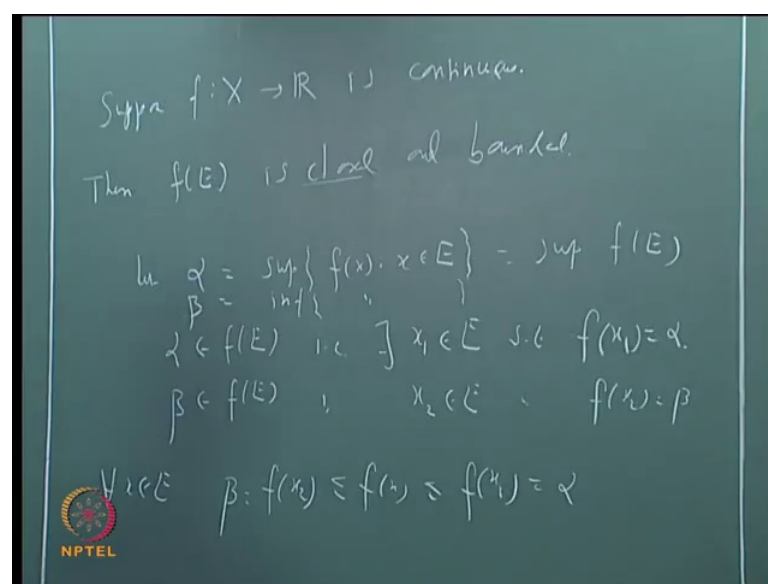 Suppn f : X → ℝ is continuous.
Then f(E) is closed and bounded.
let α = sup{ f(x) : x ∈ E } = sup f(E)
β = inf{ " }
α ∈ f(E) i.e. ∃ x₁ ∈ E s.t f(x₁) = α.
β ∈ f(E) " x₂ ∈ E " f(x₂) = β
∀ x ∈ E β = f(x₂) ≤ f(x) ≤ f(x₁) = α
NPTEL